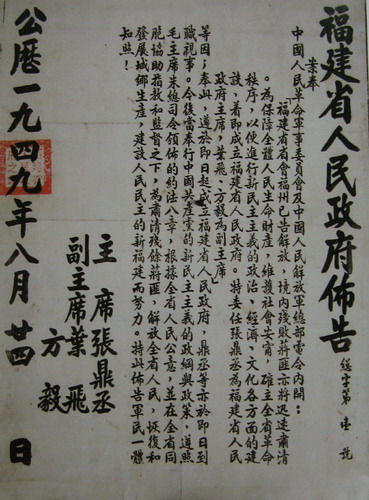 福建省人民政府佈告
總字第壹號
案奉
中國人民革命軍事委員會及中國人民解放軍總部電令內開:
「福建省省會福州已告解放,境內殘敗蔣匪亦將迅速肅清
。為保障全體人民生命財產,維護社會安寧,確立全省革命
秩序,以便進行新民主主義的政治、經濟、文化各方面的建
設,着即成立福建省人民政府。特委任張鼎丞為福建省人民
政府主席,葉飛、方毅為副主席」
等因;奉此,遵於即日起成立福建省人民政府,鼎丞等亦於即日到
職視事。今後當奉行中國共產黨的新民主主義的政綱與政策,遵照
毛主席朱總司令頒佈的約法八章,根據全省人民公意,並在全省同
胞協助指教和監督之下,為肅清殘餘蔣匪,解放全省人民,恢復和
發展城鄉生產,建設人民民主的新福建而努力。特此佈告軍民一體
知照!
主席張鼎丞
副主席葉飛
方毅
公曆一九四九年八月廿四日